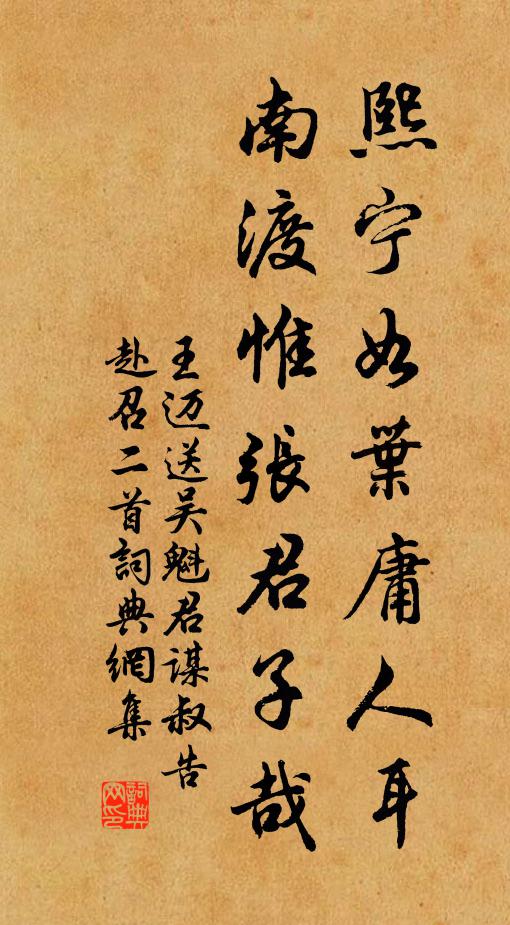 熙宁如葉庸人耳
南渡惟張君子哉
王迈送吴魁君谋叔告
赴召二首詞典網集
詞典网印